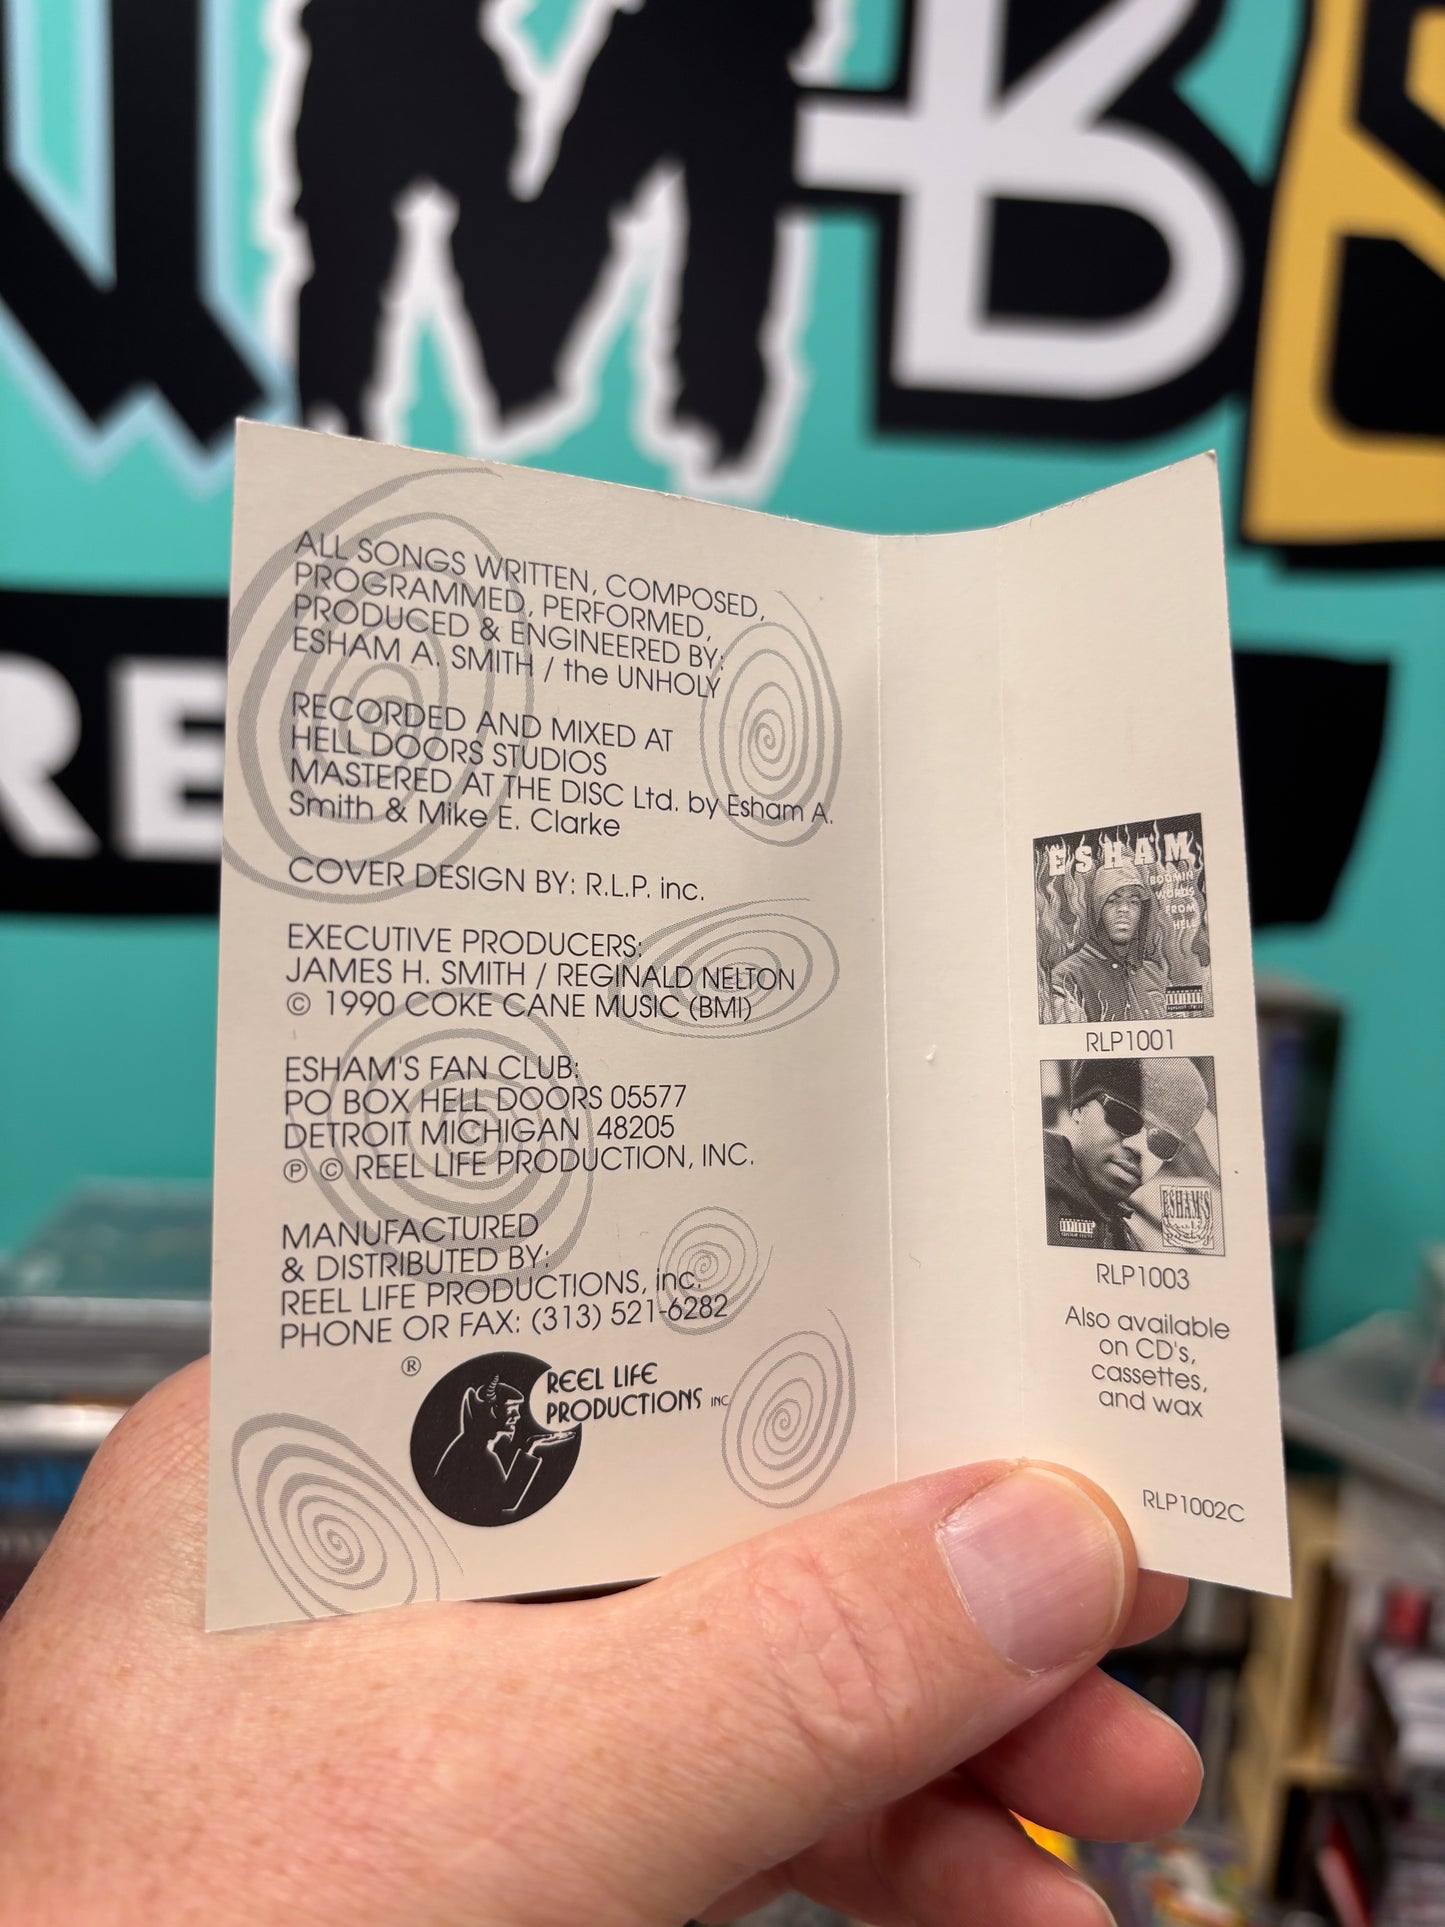 ALL SONGS WRITTEN, COMPOSED,
PROGRAMMED, PERFORMED,
PRODUCED & ENGINEERED BY:
ESHAM A. SMITH / the UNHOLY
RECORDED AND MIXED AT
HELL DOORS STUDIOS
MASTERED AT THE DISC Ltd. by Esham A.
Smith & Mike E. Clarke
COVER DESIGN BY: R.L.P. inc.
EXECUTIVE PRODUCERS:
JAMES H. SMITH / REGINALD NELTON
© 1990 COKE CANE MUSIC (BMI)
ESHAM'S FAN CLUB:
PO BOX HELL DOORS 05577
DETROIT MICHIGAN 48205
℗ © REEL LIFE PRODUCTION, INC.
MANUFACTURED
& DISTRIBUTED BY:
REEL LIFE PRODUCTIONS, inc.
PHONE OR FAX: (313) 521-6282
®
REEL LIFE
PRODUCTIONS INC
ESHAM
BOOMIN
WORDS
FROM
HELL
RLP1001
ESHAM'S
RLP1003
Also available
on CD's,
cassettes,
and wax
RLP1002C
MB
RE